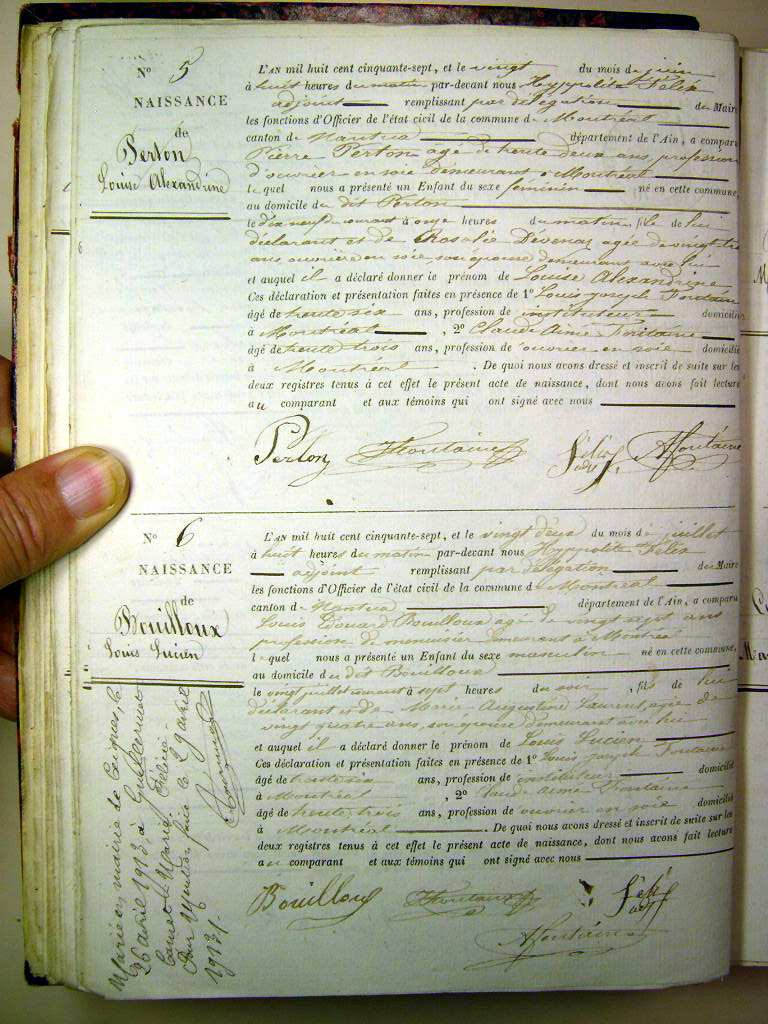 N° 5
NAISSANCE
de
Perton
Louise Alexandrine
L'AN mil huit cent cinquante-sept, et le vingt du mois de juin
à huit heures du matin par-devant nous Hyppolite Félix
adjoint remplissant par délégation du Maire
les fonctions d'Officier de l'état civil de la commune de Montréal
canton de Nantua département de l'Ain, a comparu
Pierre Perton agé de trente deux ans profession
d'ouvrier en soie demeurant à Montréal
lequel nous a présenté un Enfant du sexe féminin né en cette commune,
au domicile du dit Perton
le dix neuf du courant à onze heures du matin, fille de lui
déclarant et de Rosalie Dévenaz agée de vingt trois
ans ouvrière en soie, son épouse demeurant avec lui
et auquel il a déclaré donner le prénom de Louise Alexandrine
Ces déclaration et présentation faites en présence de 1° Louis Joseph Fontaine
âgé de trente six ans, profession de instituteur domicilié
à Montréal , 2° Claude Aimé Fontaine
âgé de trente trois ans, profession de ouvrier en soie domicilié
à Montréal . De quoi nous avons dressé et inscrit de suite sur les
deux registres tenus à cet effet le présent acte de naissance, dont nous avons fait lecture
au comparant et aux témoins qui ont signé avec nous
Perton Fontaine Félix adj. A Fontaine
N° 6
NAISSANCE
de
Bouilloux
Louis Lucien
L'AN mil huit cent cinquante-sept, et le vingt deux du mois de juillet
à huit heures du matin par-devant nous Hyppolite Félix
adjoint remplissant par délégation du Maire
les fonctions d'Officier de l'état civil de la commune de Montréal
canton de Nantua département de l'Ain, a comparu
Louis Edouard Bouilloux agé de vingt sept ans
profession de menuisier demeurant à Montréal
lequel nous a présenté un Enfant du sexe masculin né en cette commune,
au domicile du dit Bouilloux
le vingt juillet courant à sept heures du soir , fils de lui
déclarant et de Marie Augustine Laurent, agée de
vingt quatre ans, son épouse demeurant avec lui
et auquel il a déclaré donner le prénom de Louis Lucien
Ces déclaration et présentation faites en présence de 1° Louis Joseph Fontaine
âgé de trente six ans, profession de instituteur domicilié
à Montréal , 2° Claude Aimé Fontaine
âgé de trente trois ans, profession de ouvrier en soie domicilié
à Montréal . De quoi nous avons dressé et inscrit de suite sur les
deux registres tenus à cet effet le présent acte de naissance, dont nous avons fait lecture
au comparant et aux témoins qui ont signé avec nous
Bouilloux Fontaine Félix adj.
A Fontaine
Marié en mairie de Ceignes, le
26 avril 1913, à Guillermet
Marie Félicie
Pour Mention faite le 29 avril
1913